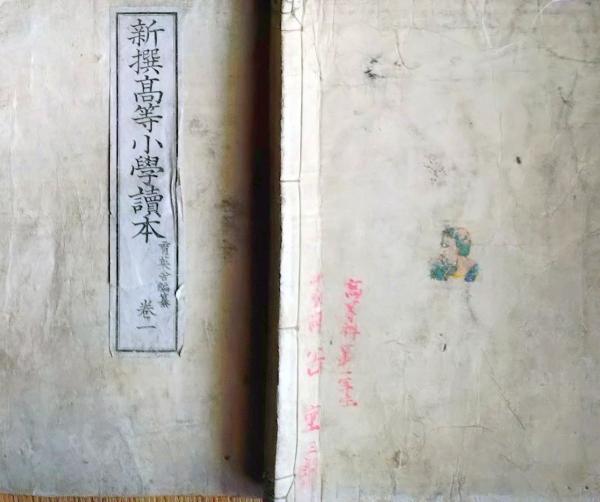 新撰髙等小學讀本
育英舎編纂
卷一
高等科第一年生